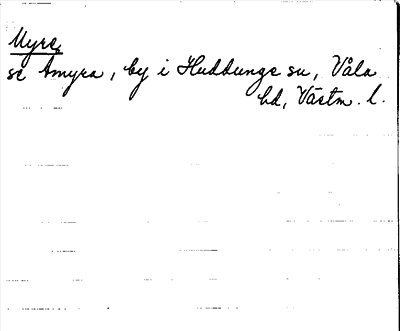 Myre,
se Amyra, by i Huddunge sn, Våla
hd, Västm. l.